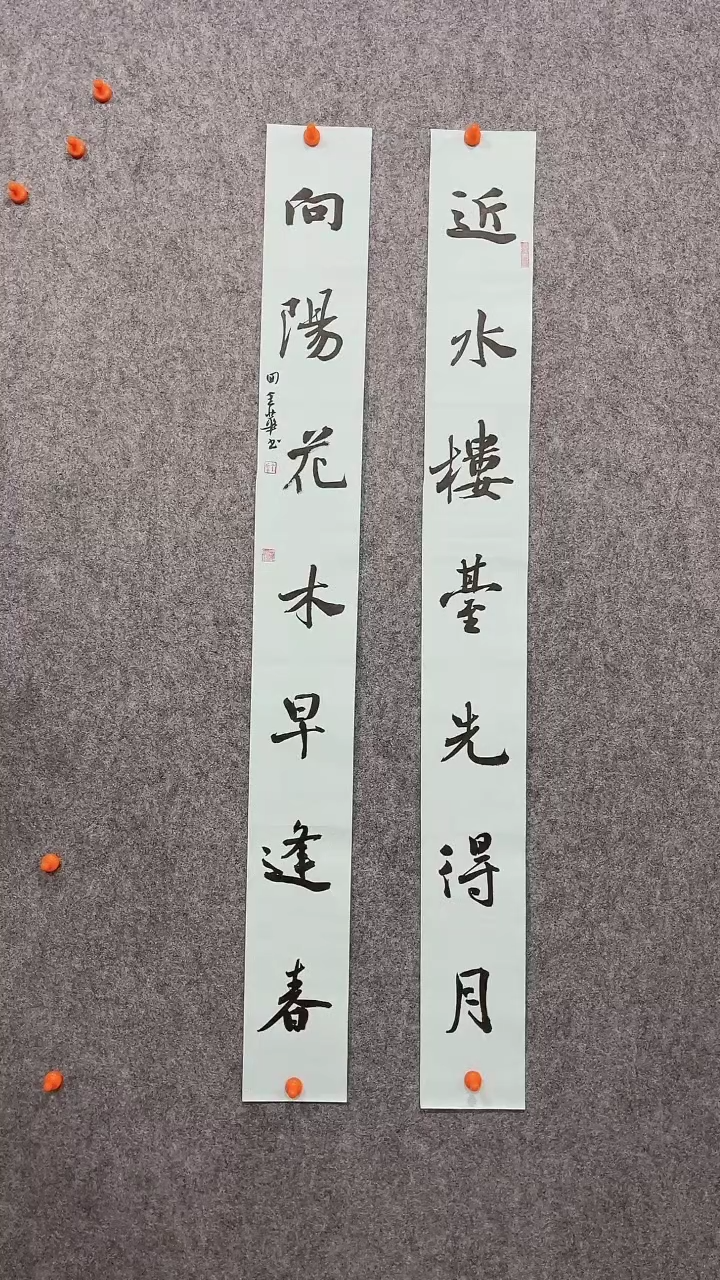 近水樓臺先得月
向陽花木早逢春
田全華书